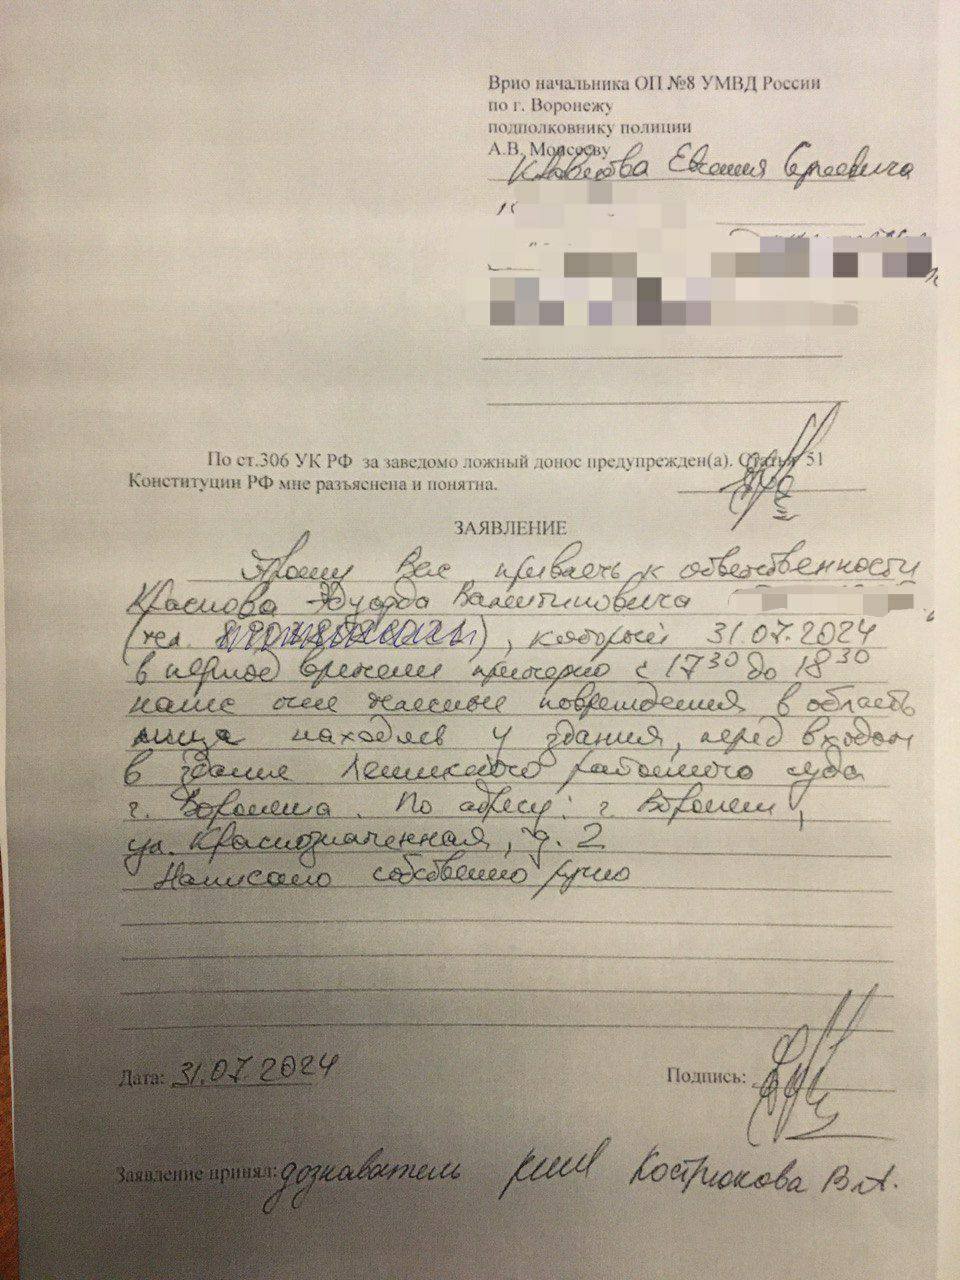 Врио начальника ОП №8 УМВД России
по г. Воронежу
подполковнику полиции
А.В. Моисееву
Евгения Сергеевича
По ст.306 УК РФ за заведомо ложный донос предупрежден(а). Статья 51
Конституции РФ мне разъяснена и понятна.
ЗАЯВЛЕНИЕ
Прошу Вас привлечь к ответственности
Краснова Эдуарда Валентиновича
(тел. ), который 31.07.2024
в период времени примерно с 17 30 до 18 30
нанес мне телесные повреждения в область
лица находясь у здания, перед входом
в здание Ленинского районного суда
г. Воронежа. По адресу: г. Воронеж,
ул. Краснознаменная, д. 2
Написано собственно ручно
Дата: 31.07.2024
Подпись:
Заявление принял: дознаватель Кострюкова В.А.